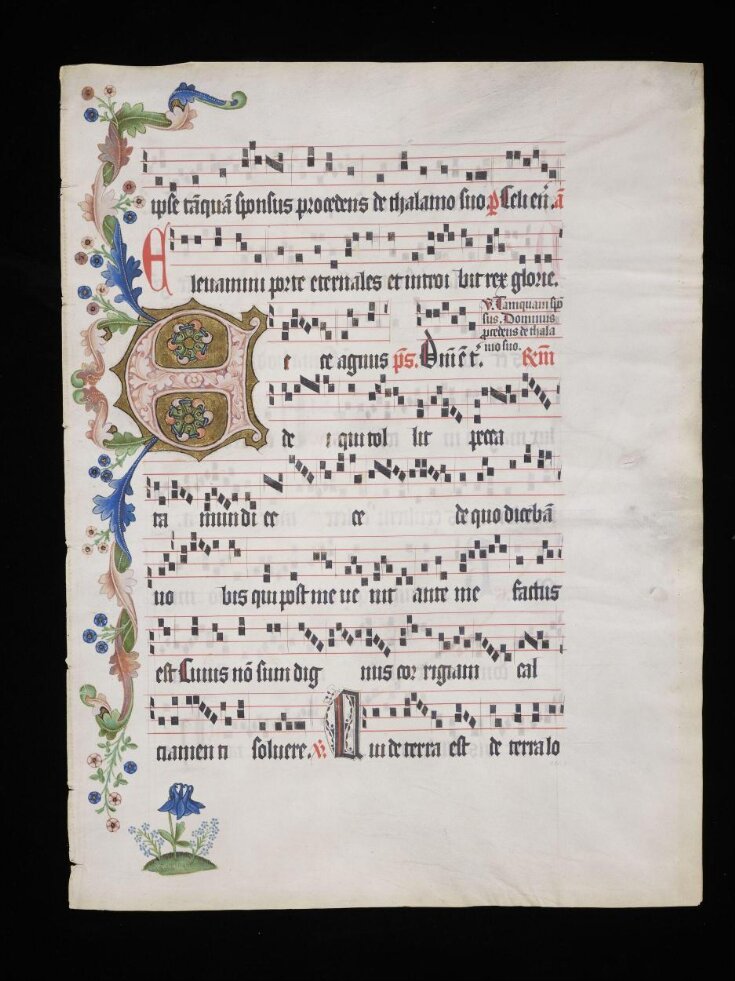 ipse tāquā sponsus procedens de thalamo suo p̄ Celi en̄. ā
Elevamini porte eternales et introi bit rex glorie.
V. Tamquam spō
sus. Dominus
procedens de thala
mo suo.
E c ce agnus p̄s. Dn̄i ē t̄. Rem̄
de i qui tol lit pecca
ta mundi ec ce de quo dicebā
uo bis qui post me ue nit ante me factus
est Cuius nō sum dig nus cor rigiam cal
ciamen ti soluere. V. Qui de terra est de terra lo